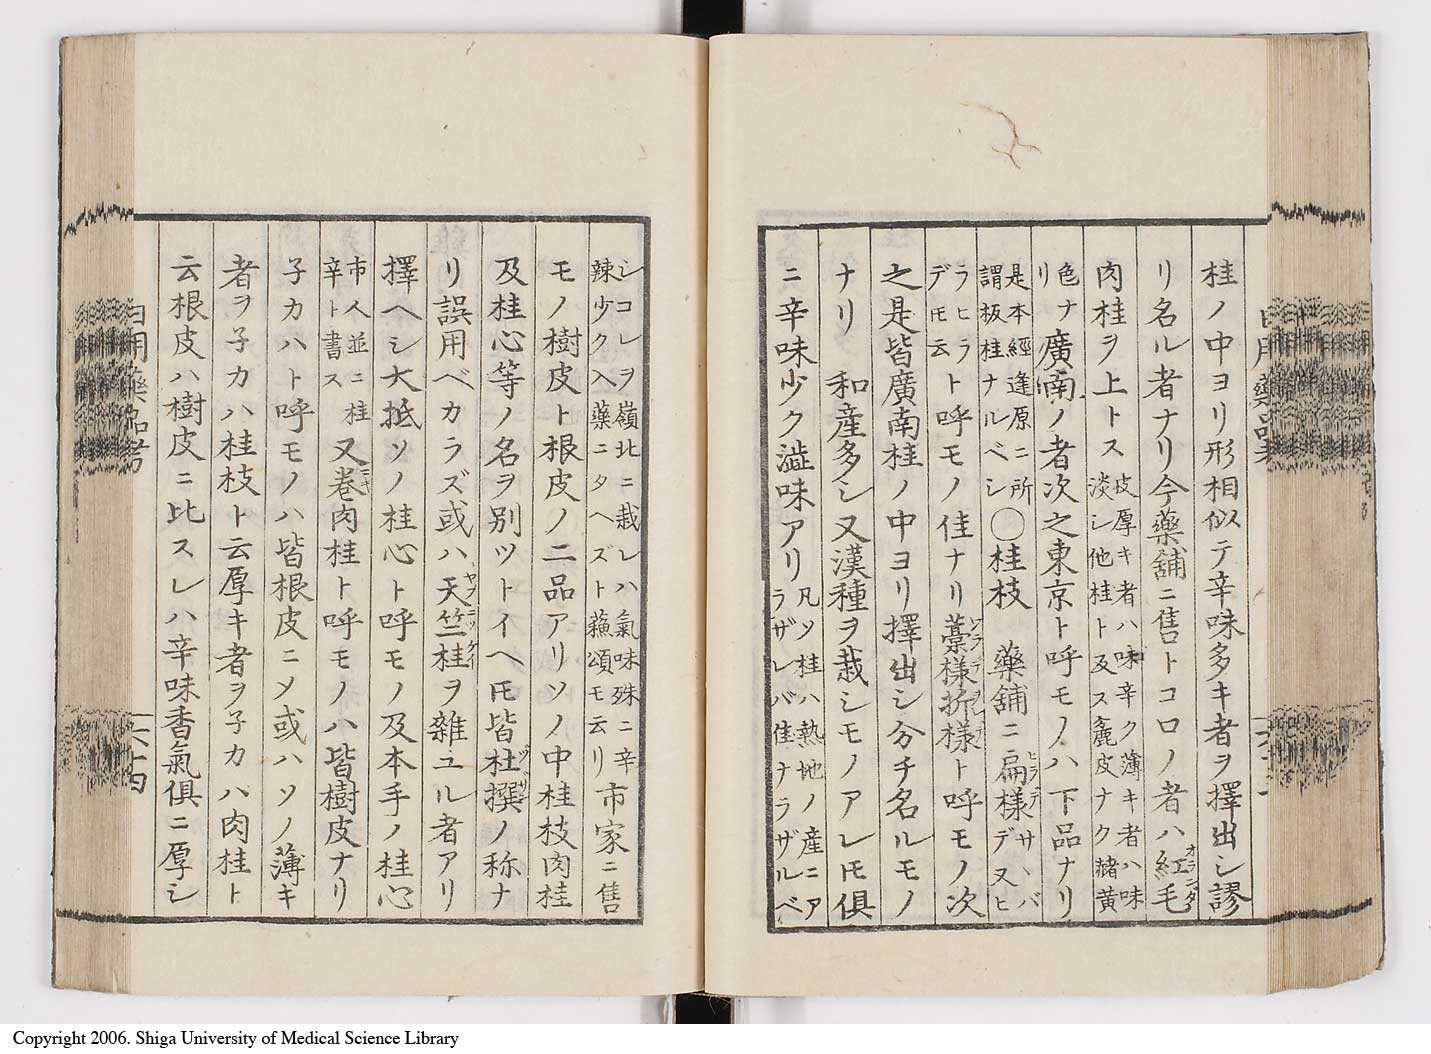 桂ノ中ヨリ形相似テ辛味多キ者ヲ擇出シ謬
リ名ル者ナリ今藥舖ニ售トコロノ者ハ紅毛オランダ
肉桂ヲ上トス皮厚キ者ハ味辛ク薄キ者ハ味淡シ他桂ト及ス麁皮ナク赭黄
色ナリ廣南ノ者次之東京ト呼モノハ下品ナリ
是本經逢原ニ所謂板桂ナルベシ○桂枝 藥舖ニ扁様ヒラデサヽバデ又ヒ
ラヒラト呼モノ佳ナリ藁様ワラデ折様ヲレデト呼モノ次デ𪜈云
之是皆廣南桂ノ中ヨリ擇出シ分チ名ルモノ
ナリ 和産多シ又漢種ヲ栽シモノアレ𪜈俱
ニ辛味少ク澁味アリ凡ソ桂ハ熱地ノ産ニアラザレバ佳ナラザルベ
シコレヲ嶺北ニ栽レハ氣味殊ニ辛辣少ク入藥ニタヘズト蘓頌モ云リ市家ニ售
モノ樹皮ト根皮ノ二品アリソノ中桂枝肉桂
及桂心等ノ名ヲ別ツトイヘ𪜈皆杜撰ノ称ナ
リ誤用ベカラズ或ハ天竺桂ヤブニッケイヲ雜ユル者アリ
擇ヘシ大抵ソノ桂心ト呼モノ及本手ノ桂心
市人並ニ桂辛ト書ス又卷マキ肉桂ト呼モノハ皆樹皮ナリ
子カハト呼モノハ皆根皮ニメ或ハソノ薄キ
者ヲ子カハ桂枝ト云厚キ者ヲ子カハ肉桂ト
云根皮ハ樹皮ニ比スレハ辛味香氣俱ニ厚シ
Copyright 2006. Shiga University of Medical Science Library